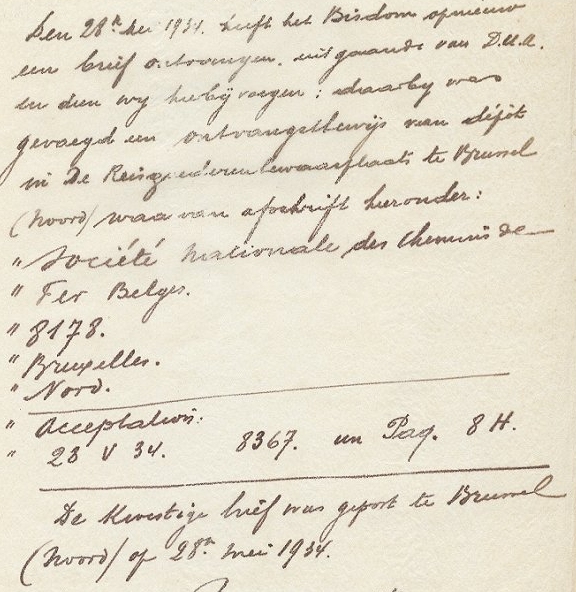 Den 28n mei 1934. heeft het Bisdom opnieuw
een brief ontvangen, uitgaande van D.U.A.
en dien wy hierbij voegen; daarby was
gevoegd een ontvangstbewijs van dépôt
in de Reisgoederenbewaarplaats te Brussel
(Noord) waarvan afschrift hieronder:
" Société Nationale des Chemins de
" Fer Belges.
" 8178.
" Bruxelles.
" Nord.
" Acceptation:
" 23 V 34. 8367. un Paq. 8 H.
De kwestige brief was gepost te Brussel
(Noord) op 28n mei 1934.